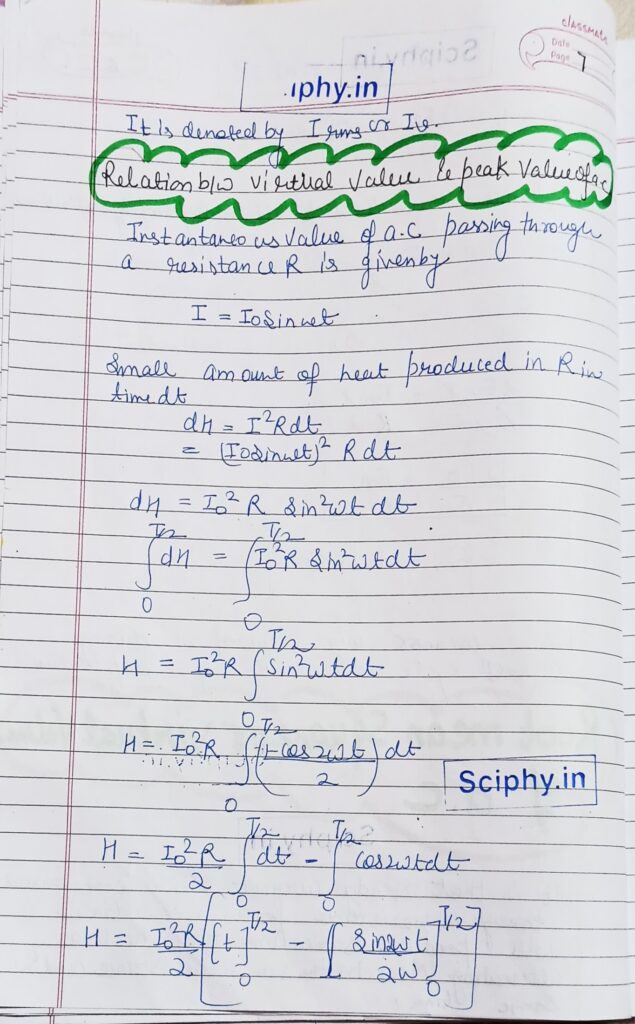 classmate
Date
Page 7
iphy.in
It is denoted by Irms or Iv.
Relation b/w virtual value & peak value of a.c
Instantaneous value of a.c passing through
a resistance R is given by
I = I₀ sin wt
Small amount of heat produced in R in
time dt
dH = I²Rdt
= (I₀ sin wt)² R dt
dH = I₀² R sin²ωt dt
∫₀^{T/2} dH = ∫₀^{T/2} I₀²R sin²ωt dt
H = I₀²R ∫₀^{T/2} sin²ωt dt
H = I₀²R ∫₀^{T/2} (1-cos2ωt/2) dt
Sciphy.in
H = I₀²R/2 ∫₀^{T/2} dt − ∫₀^{T/2} cos2ωt dt
H = I₀²R/2 [[t]₀^{T/2} − [sin2ωt/2ω]₀^{T/2}]